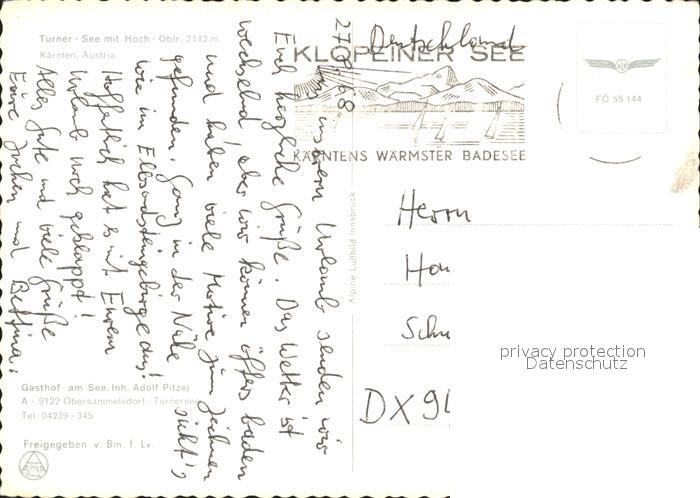 Turner - See mit Hoch - Obir, 2142 m
Kärnten, Austria
27.8.68
Aus unserem Urlaub senden wir
Euch herzliche Grüße. Das Wetter ist
wechselnd, aber wir können öfters baden
und haben viele Motive zum Zeichnen
gefunden. Ganz in der Nähe sieht's
wie im Elbsandsteingebirge aus!
Hoffentlich hat es mit Eurem
Urlaub noch geklappt!
Alles Gute und viele Grüße
Eure Jochen und Bettina.
Gasthof - am See, Inh. Adolf Pitzej
A - 9122 Obersammelsdorf - Turnersee
Tel. 04239 - 345
Freigegeben v. Bm. f. Lv.
ALPINE
Alpine Luftbild Innsbruck
Deutschland
KLOPEINER SEE
KÄRNTENS WÄRMSTER BADESEE
FÖ 55 144
Herrn
Schu
DX 91
privacy protection
Datenschutz